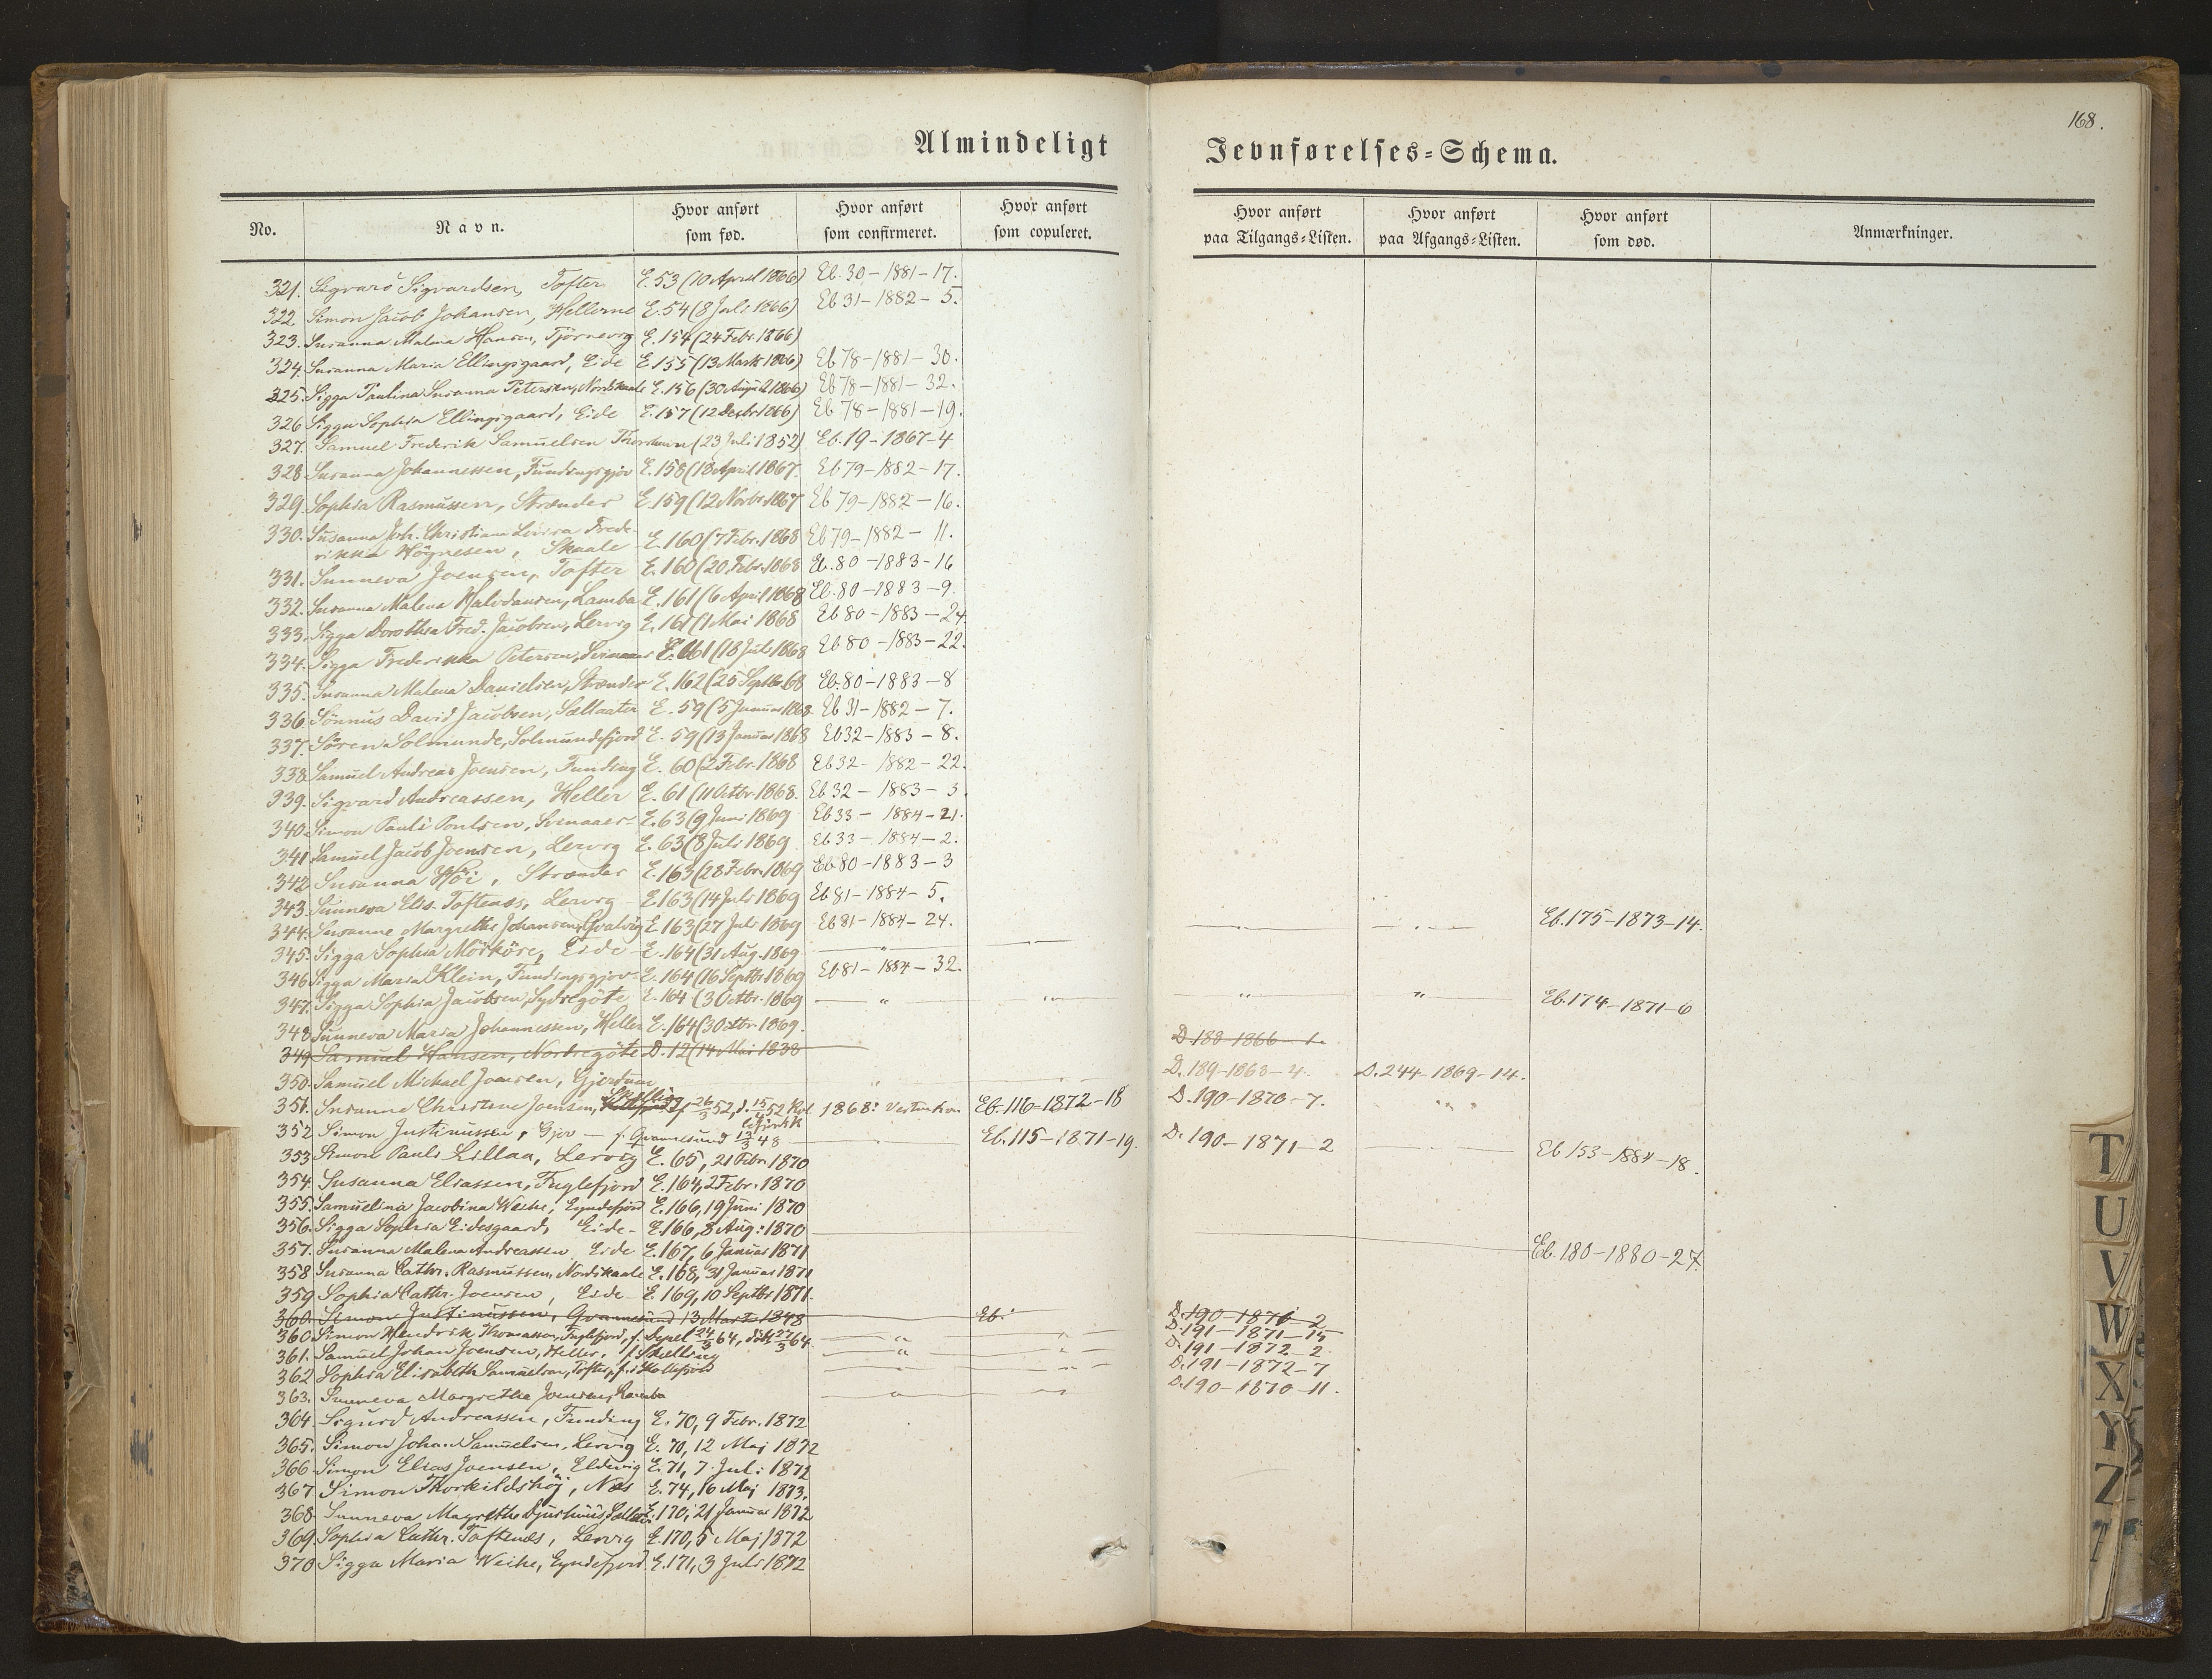 168.
Almindeligt Jevnførelses=Schema.
No. Navn. Hvor anført som fød. Hvor anført som confirmeret. Hvor anført som copuleret. Hvor anført paa Tilgangs=Listen. Hvor anført paa Afgangs=Listen. Hvor anført som død. Anmærkninger.
321. Sigvard Sigvardsen, Tofter E. 53 (10 April 1866) Eb. 30-1881-17.
322 Simon Jacob Johansen, Hellerne E. 54 (8 Juli 1866) Eb 31-1882-5.
323. Susanna Malena Hansen, Tjörnevig E. 154 (24 Febr. 1866)
324. Susanna Maria Ellingsgaard, Eide E 155 (13 Marts 1866) Eb 78-1881-30.
325. Sigga Paulina Susanna Petersen, Nordskaale E. 156 (30 August 1866) Eb 78-1881-32.
326 Sigga Sophia Ellingsgaard, Eide E. 157 (12 Decbr 1866) Eb 78-1881-19.
327. Samuel Frederik Samuelsen Thorshavn (23 Juli 1852) Eb. 19-1867-4
328. Susanna Johannessen, Fundingsgjov E. 158 (18 April 1867. Eb 79-1882-17.
329. Sophia Rasmussen, Strænder E. 159 (12 Novbr. 1867 Eb 79-1882-16.
330. Susanna Joh. Christiana Lovisa Frede-
rikka Högnesen, Skaale E. 160 (7 Febr. 1868 Eb 79-1882-11.
331. Sunneva Joensen, Tofter E. 160 (20 Febr. 1868 Eb. 80-1883-16
332. Susanna Malena Halvdansen, Lamba E. 161 (6 April 1868 Eb. 80-1883-9.
333. Sigga Dorothea Fred. Jacobsen, Lervig E. 161 (1 Mai 1868 Eb 80-1883-24
334. Sigga Frederikka Petersen, Svinaaer E. 161 (18 Juli 1868 Eb 80-1883-22.
335. Susanna Malena Danielsen, Strænder E. 162 (25 Septbr. 68 Eb. 80-1883-8
336. Sönnus David Jacobsen, Sellaater E. 59 (5 Januar 1868. Eb 31-1882-7.
337. Sören Solmunde, Solmundefjord E. 59 (13 Januar 1868 Eb 32-1883-8.
338. Samuel Andreas Joensen, Funding E. 60 (2 Febr. 1868 Eb 32-1882-22.
339. Sigvard Andreassen, Heller E. 61 (11 Octbr. 1868. Eb 32-1883-3.
340. Simon Pauli Poulsen, Svinaaer E. 63 (9 Juni 1869 Eb 33-1884-21.
341 Samuel Jacob Joensen, Lervig E. 63 (8 Juli 1869 Eb 33-1884-2.
342. Susanna Höi, Strænder E. 163 (28 Febr. 1869 Eb 80-1883-3
343. Sunneva Elis. Toftenæs, Lervig E. 163 (14 Juli 1869 Eb 81-1884-5.
344. Susanne Margrethe Johansen, Qvalvig E. 163 (27 Juli 1869 Eb 81-1884-24.
345. Sigga Sophia Mörköre, Eide E. 164 (31 Aug. 1869 — " — Eb. 175-1873-14.
346. Sigga Maria Klein, Fundingsgjov E. 164 (16 Septbr 1869 Eb 81-1884-32.
347. Sigga Sophia Jacobsen, Sydregöte E. 164 (3 Octbr. 1869 — " — " — " — " — Eb. 174-1871-6
348. Sunneva Maria Johannessen, Heller E. 164 (30 Octbr. 1869.
349 Samuel Hansen, Nordregöte D. 12 (14 Mai 1838 D 188-1866-1.
350. Samuel Michael Joensen, Gjertum " D. 189-1868-4. D. 244-1869-14.
351. Susanne Christine Joensen, f 26/3 52, d. 15/4 52 1868: Eb. 116-1872-18 D. 190-1870-7. " "
352 Simon Justinussen, Gjov — f. Qvannesund 13/3 48 Eb. 115-1871-19. D. 190-1871-2 Eb 153-1884-18.
353 Simon Pauli Lillaa, Lervig E. 65, 21 Febr 1870
354. Susanna Eliassen, Fuglefjord E. 164, 2 Febr. 1870
355. Samuelina Jacobina Weihe, Eyndefjord E. 166, 19 Juni 1870
356. Sigga Sophia Eidesgaard, Eide E. 166, 8 Aug: 1870 Eb. 180-1880-27.
357. Susanna Malena Andreassen Eide E. 167, 6 Januar 1871
358 Susanna Cathr. Rasmussen, Nordskaale E. 168, 31 Januar 1871
359 Sophia Cathr. Joensen, Eide E. 169, 10 Septbr 1871.
360. Simon Justinussen, Qvannesund 13 Marts 1848 Eb. D. 190-1871-2
360. Simon Hendrik Thomassen, Fuglefjord, f. 24/3 64, döbt 27/3 64. — " — " — D. 191-1871-15
361. Samuel Johan Joensen, Heller, f. Skelling — " — " — D. 191-1872-2
362 Sophia Elisabeth Samuelsen, Tofter, f. i Kollefjord — " — " — D. 191-1872-7
363. Sunneva Margrethe Joensen, Lamba — " — " — D. 190-1870-11.
364. Sigurd Andreassen, Funding E. 70, 9 Febr. 1872
365. Simon Johan Samuelsen, Lervig E. 70, 12 Maj 1872
366. Simon Elias Joensen, Eldevig E. 71, 7 Juli 1872
367. Simon Thorkildshöj, Næs E. 74, 16 Maj 1873.
368. Sunneva Magrethe Djurhuus, Sellater E. 170, 21 Januar 1872
369. Sophia Cathr. Toftenæs, Lervig E. 170, 5 Maj 1872
370 Sigga Maria Weihe, Eyndefjord E. 171, 3 Juli 1872
T
U
V
W
X
Y
Z